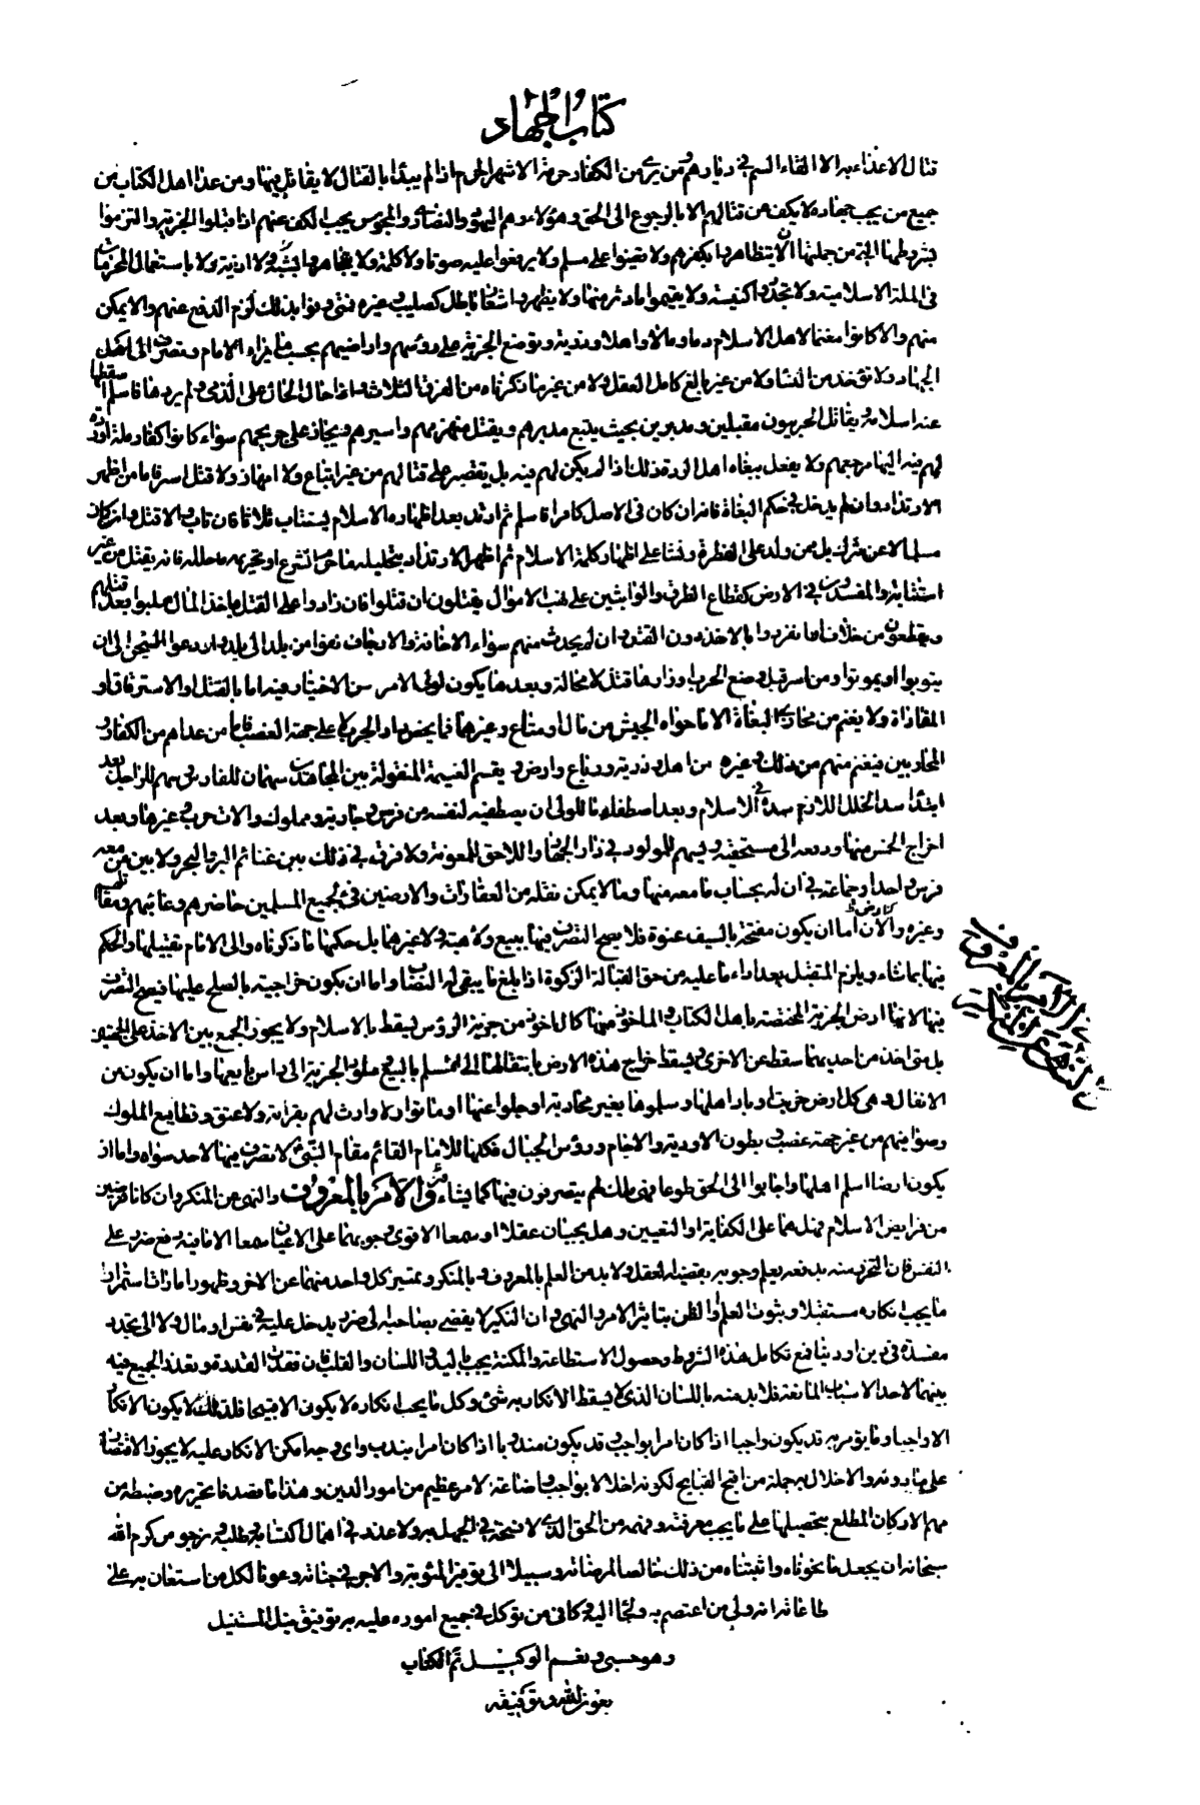 كتاب الجهاد
قتال الاعداء به الا القاء السم في ديارهم ومن يرى من الكفار حرمة الاشهر الحرم اذا لم يبدأ بالقتال لا يقاتل فيها ومن عدا اهل الكتاب من
جميع من يجب جهاده لا يكف عن قتالهم الا بالرجوع الى الحق وهؤلاء وهم اليهود والنصارى والمجوس يجب الكف عنهم اذا قبلوا الجزية والتزموا
بشروطها التي من جملتها ان لا يتظاهروا بكفرهم ولا يعينوا على مسلم ولا يرفعوا عليه صوتا ولا كلمة ولا يتجاهروا بسبه ولا اذية ولا باستعمال المحرمات
في الملة الاسلامية ولا تجددوا كنيسة ولا يقيموا ما دثر منها ولا يظهروا شعار باطل كصليب وغيره فمتى لم يوفوا بذلك لزم الدفع عنهم والا يمكن
منهم والا كانوا مغنما لاهل الاسلام دما ومالا واهلا وذرية وتوضع الجزية على رؤسهم واراضيهم بحسب ما يراه الامام وتصرف الى اهل
الجهاد ولا تؤخذ من النساء ولا من غير بالغ كامل العقل ولا من غير ما ذكرناه من الفرق الثلاثة واذا حال الحال على الذمي ولم يردها فاسلم اسقطها
عنه اسلامه ويقاتل الحربيون مقبلين ومدبرين بحيث يتبع مدبرهم ويقتل منهزمهم واسيرهم ويجاز على جريحهم سواء كانوا كفار ملة او ردة
لهم فيه اليها مرجعهم ولا يفعل ببغاة اهل الردة ذلك اذا لم يكن لهم فيه بل يقتصر على قتالهم من غير اتباع ولا اجهاز ولا قتل اسر فاما من اظهر
الارتداد وان لم يدخل في حكم البغاة فانه ان كان في الاصل كافرا فاسلم ثم ارتد بعد اظهاره الاسلام يستتاب ثلاثا فان تاب والا قتل وان كان
مسلما لا عن شرك بل ممن ولد على الفطرة ونشأ على اظهار كلمة الاسلام ثم اظهر الارتداد بتحليله ما حرم الشرع او تحريمه ما حلله فانه يقتل من غير
استتابة والمفسدون في الارض كقطاع الطرق والواثبين على نهب الاموال يقتلون ان قتلوا فان زادوا على القتل باخذ المال صلبوا بعد قتلهم
ويقطعون من خلاف اما تفردوا بالاخذ دون القتل وان لم يحدث منهم سواء الاخافة والارجاف نفوا من بلد الى بلد الى ان
يتوبوا او يموتوا ومن اسر قبل وضع الحرب اوزارها قتل لا محالة وبعدها يكون لولي الامر من الاختيار فيه اما بالقتل او الاسترقاق او
المفاداة ولا يغنم من محاربي البغاة الا ما حواه الجيش من مال او متاع وغيرهما فيما يخص دار الحرب لا على جهة الغصب فاما من عداهم من الكفار
المحاربين فيغنم منهم من ذلك وغيره من اهل وذرية ورباع وارض ويقسم الغنيمة المنقولة بين المجاهدين سهمان للفارس وسهم للراجل بعد
ابتداء سد الخلل اللازم سده في الاسلام وبعد اصطفاء ما للوالي ان يصطفيه لنفسه من فرس وجارية ومملوك والات حرب وغيرها وبعد
اخراج الخمس منها ودفعه الى مستحقيه ويسهم للمولود في دار الجهاد واللاحق للمعونة ولا فرق في ذلك بين غنائم البر والبحر ولا بين من معه
فرس واحد او جماعة في ان له بحساب ما معه منها وما لا يمكن نقله من العقارات والارضين فيء لجميع المسلمين حاضرهم وغائبهم ومقاتلهم
وغيره والارض اما ان يكون مفتتحة بالسيف عنوة فلا يصح التصرف فيها ببيع ولا هبة ولا غيرهما بل حكمها ما ذكرناه والى الامام تقبيلها والحكم
فيها بما شاء ويلزم المتقبل بعد اداء ما عليه من حق القبالة الزكوة اذا بلغ ما يبقى له النصاب واما ان يكون خراجية بالصلح عليها فيصح التصرف
فيها لانها ارض الجزية المختصة باهل الكتاب والماخوذ منها كالماخوذ من جزية الرؤس يسقط بالاسلام ولا يجوز الجمع بين الاخذ على الجهتين
بل متى اخذ من احديهما سقط عن الاخرى ويسقط خراج هذه الارض بانتقالها الى المسلم بالبيع وتعود الجزية الى راس بايعها واما ان يكون من
الانفال وهي كل ارض خربت او باد اهلها او سلموها بغير محاربة او جلوا عنها او ماتوا ولا وارث لهم بقرابة ولا عتق وقطايع الملوك
وصوافيهم من غير جهة غصب بطون الاودية والاجام ورؤس الجبال فكلها للامام القائم مقام النبي لا تصرف فيها لاحد سواه واما ان
يكون ارضا اسلم اهلها واجابوا الى الحق طوعا فهي ملك لهم يتصرفون فيها كما يشاءون والامر بالمعروف والنهي عن المنكر وان كانا فرضين
من فرايض الاسلام فهل هما على الكفاية او التعيين وهل يجبان عقلا او سمعا الاقوى وجوبهما على الاعيان سمعا الا ما فيه دفع ضرر على
النفس فان التحرز منه بدفعه يعلم وجوبه بقضية العقل ولا بد من العلم بالمعروف وبالمنكر وتمييز كل واحد منهما عن الاخر وظهور امارات استمرار
ما يجب انكاره مستقبلا وثبوت العلم او الظن بتاثير الامر والنهي وان النكير لا يفضي بصاحبه الى ضرر يدخل عليه في نفس او مال ولا الى تجدد
مفسدة في دين او دنيا فمع تكامل هذه الشروط وحصول الاستطاعة والمكنة يجب باليد واللسان والقلب فان فقدت القدرة وتعذر الجميع فيه
بينهما لاحد الاسباب المانعة فلا بد منه باللسان الذي لا يسقط الانكار به شيء وكل ما يجب انكاره لا يكون الا قبيحا فلذلك لا يكون الانكار
الا واجبا وما يؤمر به قد يكون واجبا اذا كان امرا بواجب وقد يكون مندوبا اذا كان امرا بندب واي وجه امكن الانكار عليه لا يجوز الاقتصار
على ما دونه والاخلال بجملة من اقبح القبايح لكونه اخلالا بواجب واضاعة لامر عظيم من امور الدين وهذا ما قصدنا تحريره وضبطه من
مهم الاركان المطلع بتحصيلها على ما يجب معرفته وفهمه من الحق الذي لا فسحة في الجهل به ولا عذر في اهمال اكتسابه وطلبه نرجو من كرم الله
سبحانه ان يجعل ما نحوناه واثبتناه من ذلك خالصا لمرضاته وسبيلا الى توفير المثوبة والاجر في جناته وعونا لكل من استعان به على
طاعاته انه ولي من اعتصم به ولجأ اليه وكافي من توكل في جميع اموره عليه به توفيق نيل المستنيل
وهو حسبي ونعم الوكيل تم الكتاب
بعون الله وتوفيقه
في الامر بالمعروف
والنهي عن المنكر